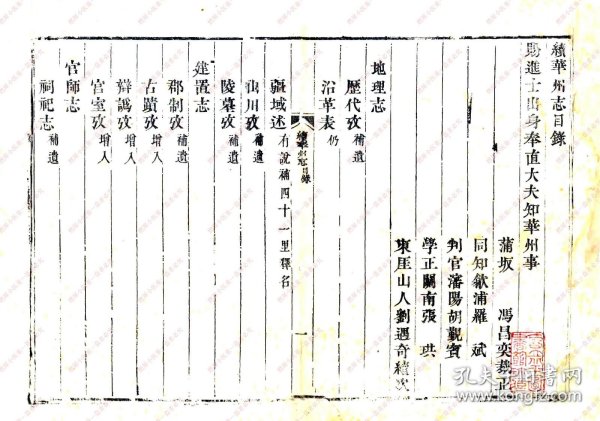 續華州志目錄
賜進士出身奉直大夫知華州事
蒲坂 馮昌奕裁正
同知歙浦羅斌
判官瀋陽胡觀賓
學正關南張珙
東厓山人劉遇奇續次
地理志
歷代攷 補遺
沿革表 仍
疆域述 有說補四十一里釋名
山川攷 補遺
陵墓攷 補遺
建置志
郡制攷 補遺
古蹟攷 增入
辯譌攷 增入
官室攷 增入
官師志
祠祀志 補遺
續華州志目錄
一
孔夫子旧书网